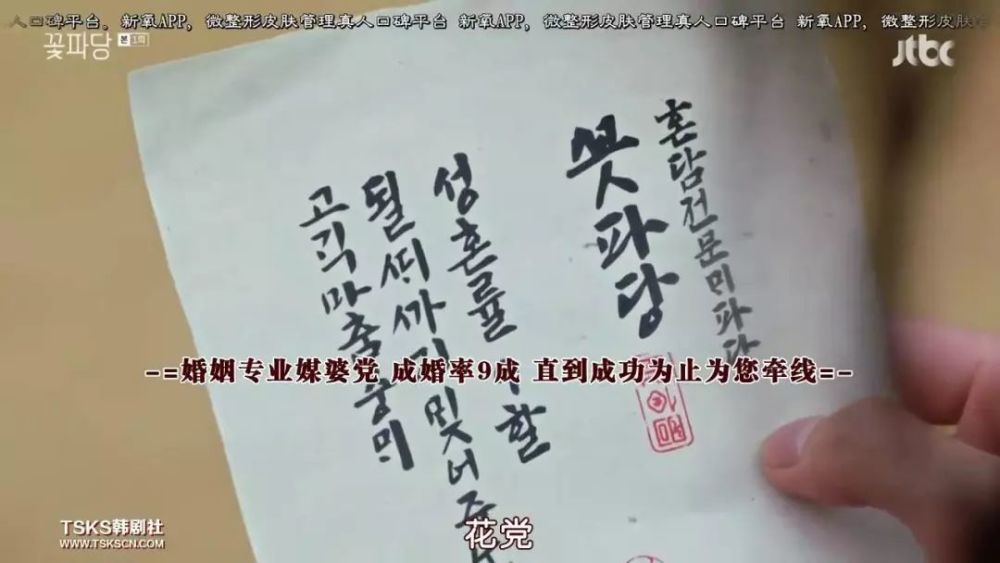 人口碑平台, 新氧APP, 微整形皮肤管理真人口碑平台 新氧APP, 微整形皮肤管理真人口碑平台 新氧APP, 微整形皮肤管
꽃파당 본 1회
jtbc
혼담전문ᄆᆡ파당
ᄭᅩᆺ파당
성혼률 할
고ᄀᆡᆨ마춤
-=婚姻专业媒婆党 成婚率9成 直到成功为止为您牵线=-
花党
TSKS韩剧社
WWW.TSKSCN.COM